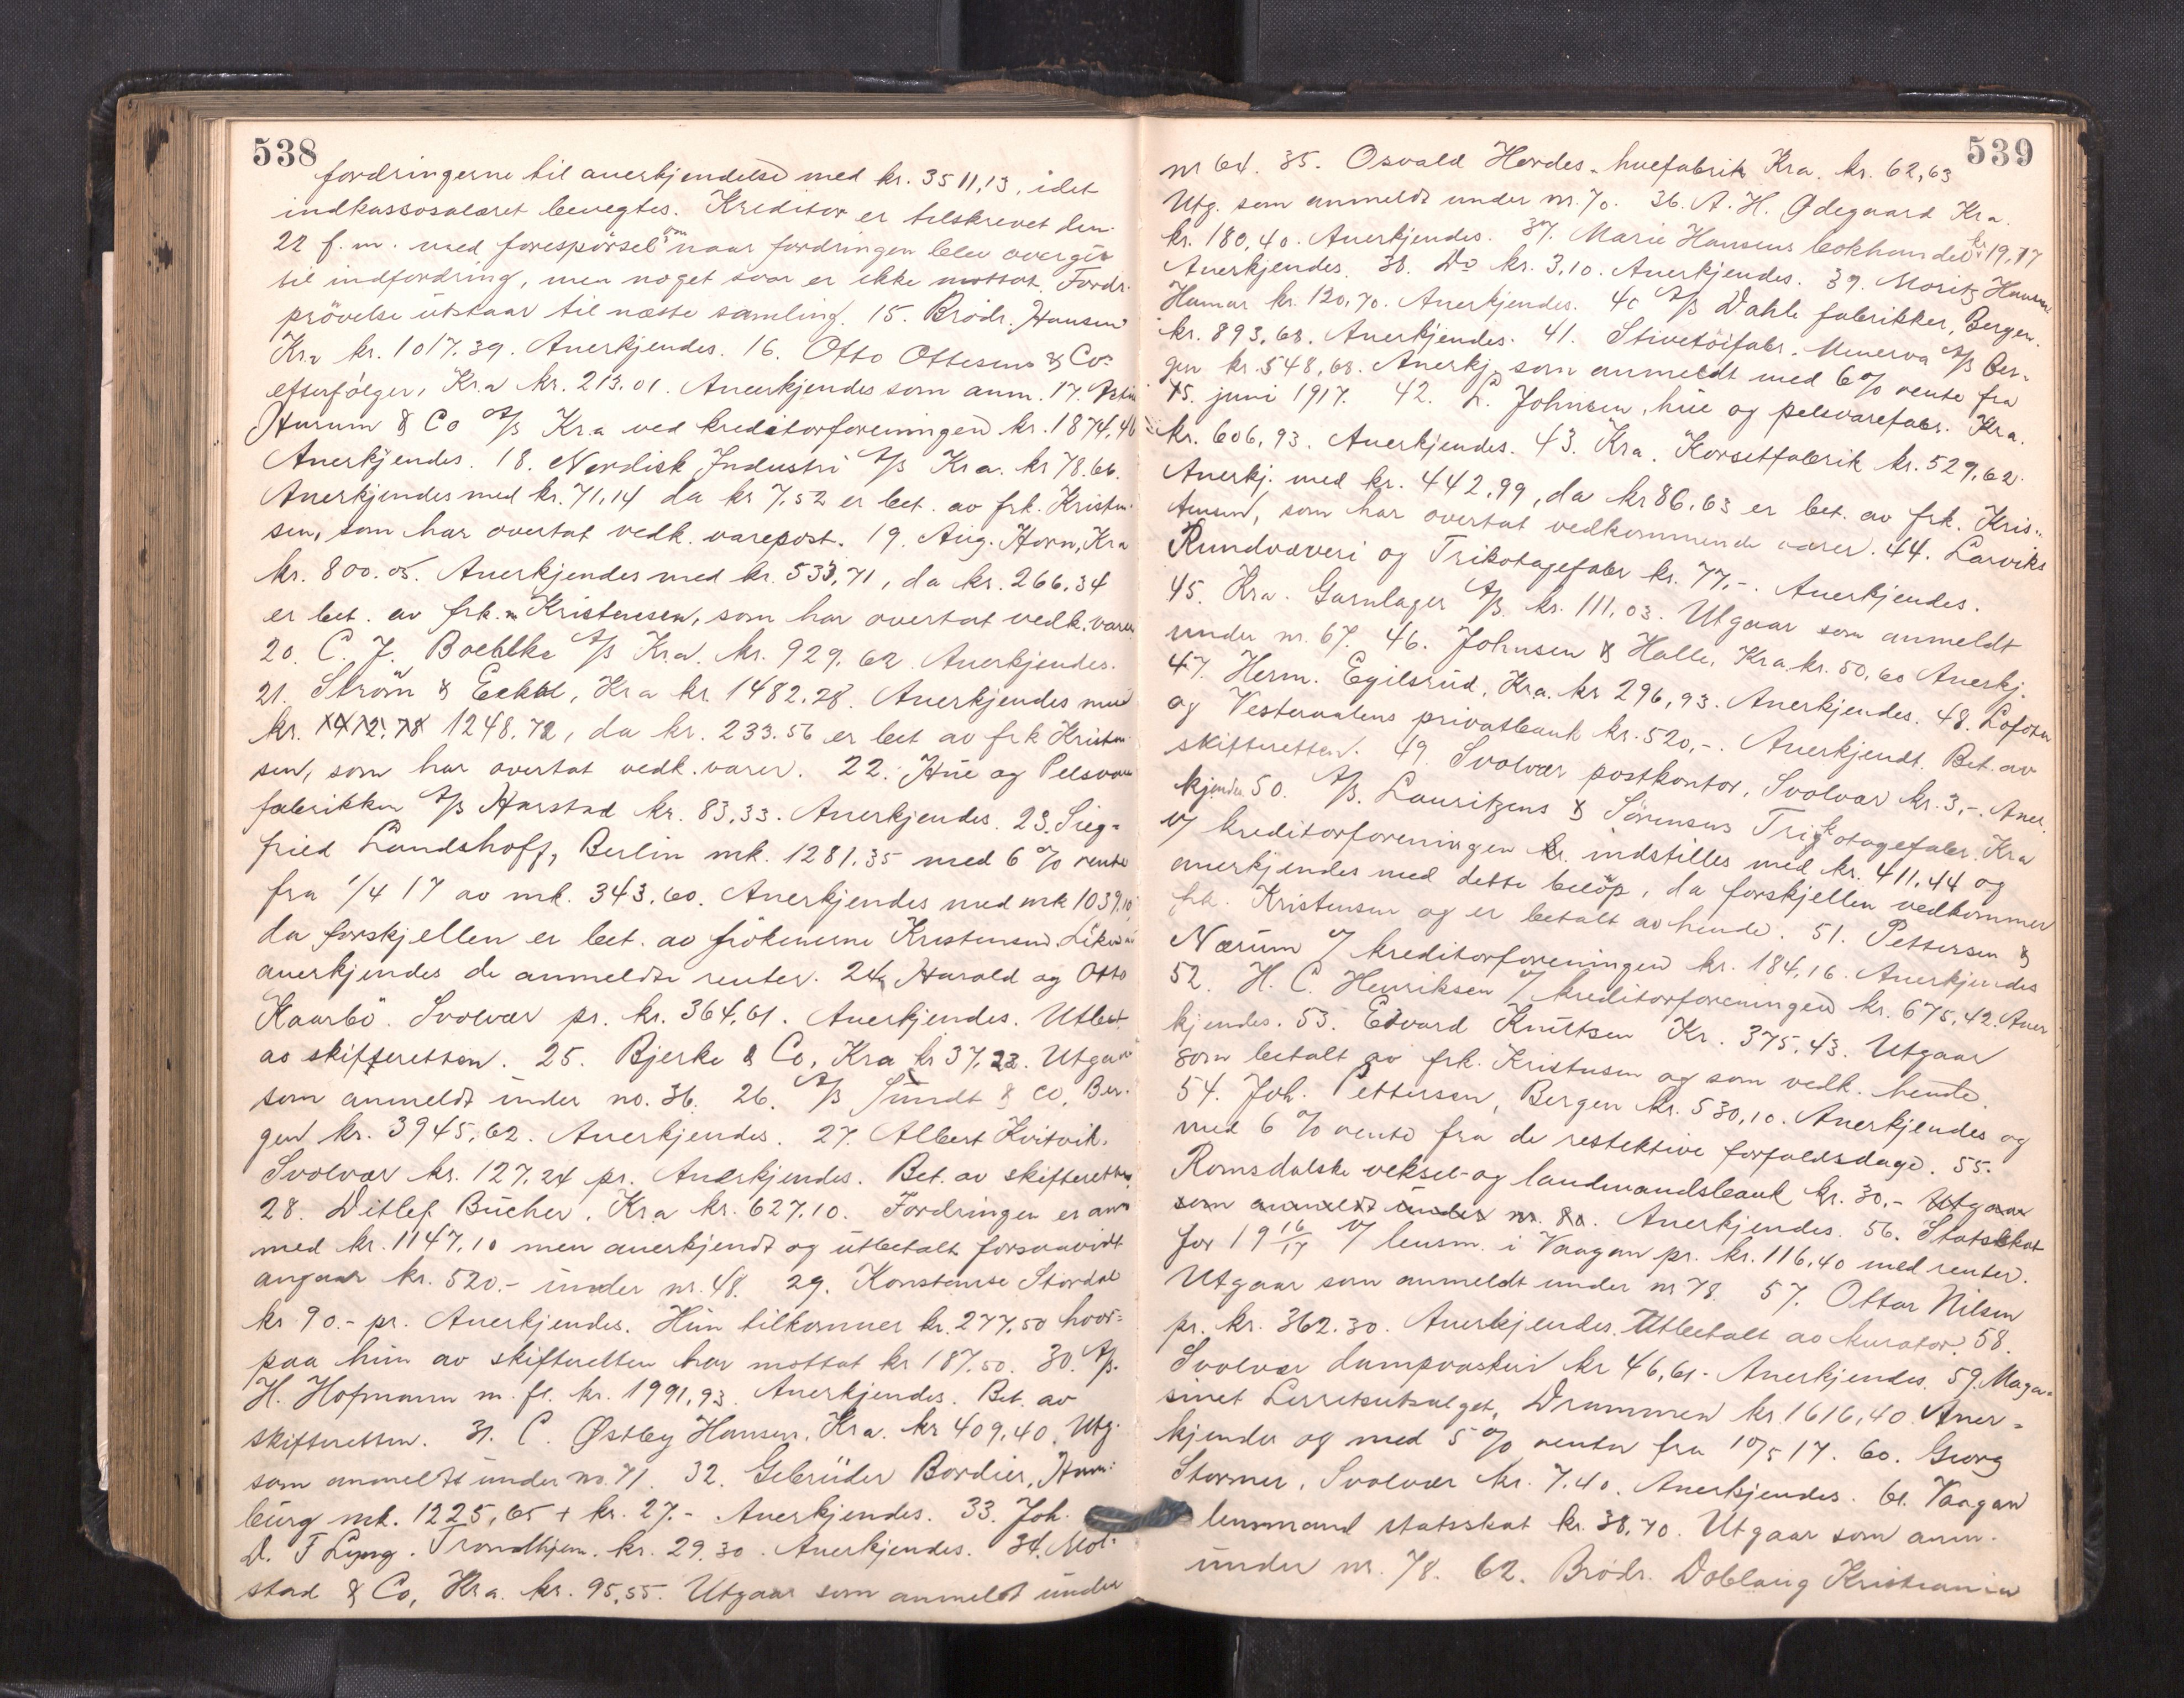 538
fordringerne til anerkjendelse med kr. 3511,13, idet
indkassosalæret bevegtes. Kreditor er tilskrevet den
22 f. m. med forespörsel om naar fordringen blev overgit
til indfordring, men noget svar er ikke mottat. Fordr.
prövelse utstaar til næste samling. 15. Brödr. Hansen
Kra kr. 1017.39. Anerkjendes. 16. Otto Ottesens & Co
efterfölger, Kra kr. 213.01. Anerkjendes som anm. 17.
Hurum & Co A/S Kra ved kreditorforeningen kr. 1874,46
Anerkjendes. 18. Nordisk Industri A/S Kra. kr 78.66.
Anerkjendes med kr. 71,14 da kr 7,52 er bet. av frk. Kristen-
sen, som har overtat vedk. varepost. 19. Aug. Horn, Kra
kr. 800.05. Anerkjendes med kr. 533,71, da kr. 266.34
er bet. av frk. Kristensen, som har overtat vedk. varer
20. C. J. Boehlke A/S Kra. kr. 929.62. Anerkjendes.
21. Ström & Eckbl, Kra kr. 1482.28. Anerkjendes med
kr. 1412.78 1248.72, da kr. 233.56 er bet av frk Kristen-
sen, som har overtat vedk. varer. 22. Hue og Pelsvare
fabrikken A/S Harstad kr. 83,33. Anerkjendes. 23. Sieg-
fried Landshoff, Berlin mk. 1281.35 med 6 % rente
fra 1/4 17 av mk. 343.60. Anerkjendes med mk 1039,10
da forskjellen er bet. av frökenerne Kristensen. Likesaa
anerkjendes de anmeldte renter. 24. Harald og Otto
Kaarbö. Svolvær pr. kr. 364,61. Anerkjendes. Utbet.
av skifteretten. 25. Bjerke & Co, Kra kr 37,23. Utgaar
som anmeldt under no. 36. 26. A/S Sundt & Co, Ber-
gen kr. 3945,62. Anerkjendes. 27. Albert Kvitvik,
Svolvær kr. 127.24 pr. Anerkjendes. Bet. av skifteretten.
28. Ditlef Bücher, Kra kr. 627.10. Fordringen er anm
med kr. 1147.10 men anerkjendt og utbetalt forsaavidt
angaar kr. 520.- under nr. 48. 29. Konstanse Stordal
kr 90.- pr. Anerkjendes. Hun tilkommer kr. 277.50 hvor-
paa hun av skifteretten har mottat kr 187.50. 30. A/S
H. Hofmann m. fl. kr. 1991,93. Anerkjendes. Bet. av
skifteretten. 31. C. Østbey Hansen, Kra. kr 409,40. Utg.
som anmeldt under no. 71. 32. Gebrüder Bordier, Ham-
burg mk. 1225,65 + kr. 27.- Anerkjendes. 33. Joh.
D. F Lyng. Trondhjem. kr. 29.30. Anerkjendes. 34. Mol-
stad & Co, Kra. kr. 95,55. Utgaar som anmeldt under
539
nr 64. 35. Osvald Hordes. huefabrik Kra. kr. 62,63
Utg. som anmeldt under nr. 70. 36. A. H. Ødegaard Kra.
kr. 180,40. Anerkjendes. 37. Marie Hansens bokhandel kr 19,17
Anerkjendes. 38. Do kr. 3,10. Anerkjendes. 39. Moritz Hansen
Hamar kr. 120,70. Anerkjendes. 40 A/S Dahls fabrikker, Bergen
kr. 893,68. Anerkjendes. 41. Stivetöifabr. Minerva A/S Ber-
gen kr. 548,68. Anerkj. som anmeldt med 6 % rente fra
15. juni 1917. 42. L. Johnsen, hue og pelsvarefabr. Kra.
kr. 606,93. Anerkjendes. 43. Kra. Korsetfabrik kr. 529,62.
Anerkj. med kr. 442,99, da kr 86,63 er bet. av frk. Kris-
tensen, som har overtat vedkommende varer. 44. Larviks
Rundvæveri og Trikotagefabr kr. 77,-. Anerkjendes.
45. Kra. Garnlager A/S. kr. 111,03. Utgaar som anmeldt
under nr. 67. 46. Johnsen & Halle, Kra kr. 50,60 Anerkj.
47. Herm. Egilsrud, Kra. kr 296,93. Anerkjendes. 48. Lofoten
og Vesteraalens privatbank kr. 520,-. Anerkjendt. Bet. av
skifteretten. 49. Svolvær postkontor, Svolvær kr. 3,-. Aner-
kjendes 50. A/S. Lauritzens & Sörensens Trikotagefabr. Kra
v/ kreditorforeningen kr. indstilles med kr. 411.44 og
anerkjendes med dette belöp, da forskjellen vedkommer
frk. Kristensen og er betalt av hende. 51. Pettersen &
Nærum v/ kreditorforeningen kr. 184,16. Anerkjendes
52. H. C. Henriksen v/ kreditorforeningen kr. 675,42. Aner-
kjendes. 53. Edvard Knutsen Kr. 375,43. Utgaar
som betalt av frk. Kristensen og som vedk. hende.
54. Joh. Pettersen, Bergen kr. 530,10. Anerkjendes og
med 6 % rente fra de restektive forfaldsdage. 55.
Romsdalske veksel- og landmandsbank kr. 30,- Utgaar
som anmeldt under nr. 80. Anerkjendes. 56. Statsskat
for 19 16/17 v/ lensm. i Vaagan pr. kr. 116,40 med renter.
Utgaar som anmeldt under nr 78. 57. Ottar Nilsen
pr. kr. 362.30. Anerkjendes. Utbetalt av kurator. 58.
Svolvær dampvaskeri kr 46,61. Anerkjendes. 59. Maga-
sinet Lerretsutsalget, Drammen kr. 1616,40. Aner-
kjendes og med 5 % renter fra 10/5 17. 60. Georg
Stormer, Svolvær kr. 7.40. Anerkjendes. 61. Vaagan
lensmand statsskat kr. 38,70. Utgaar som anm.
under nr. 78. 62. Brödr. Doblaug Kristiania